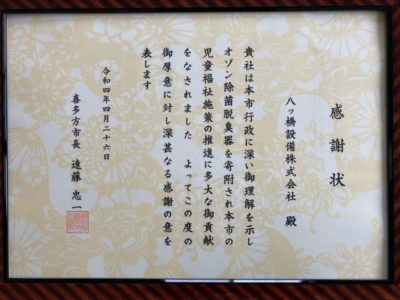 感謝状
八ッ橋設備株式会社 殿
貴社は本市行政に深い御理解を示し
オゾン除菌脱臭器を寄附され本市の
児童福祉施策の推進に多大な御貢献
をなされました よってこの度の
御厚意に対し深甚なる感謝の意を
表します
令和四年四月二十六日
喜多方市長 遠藤忠一